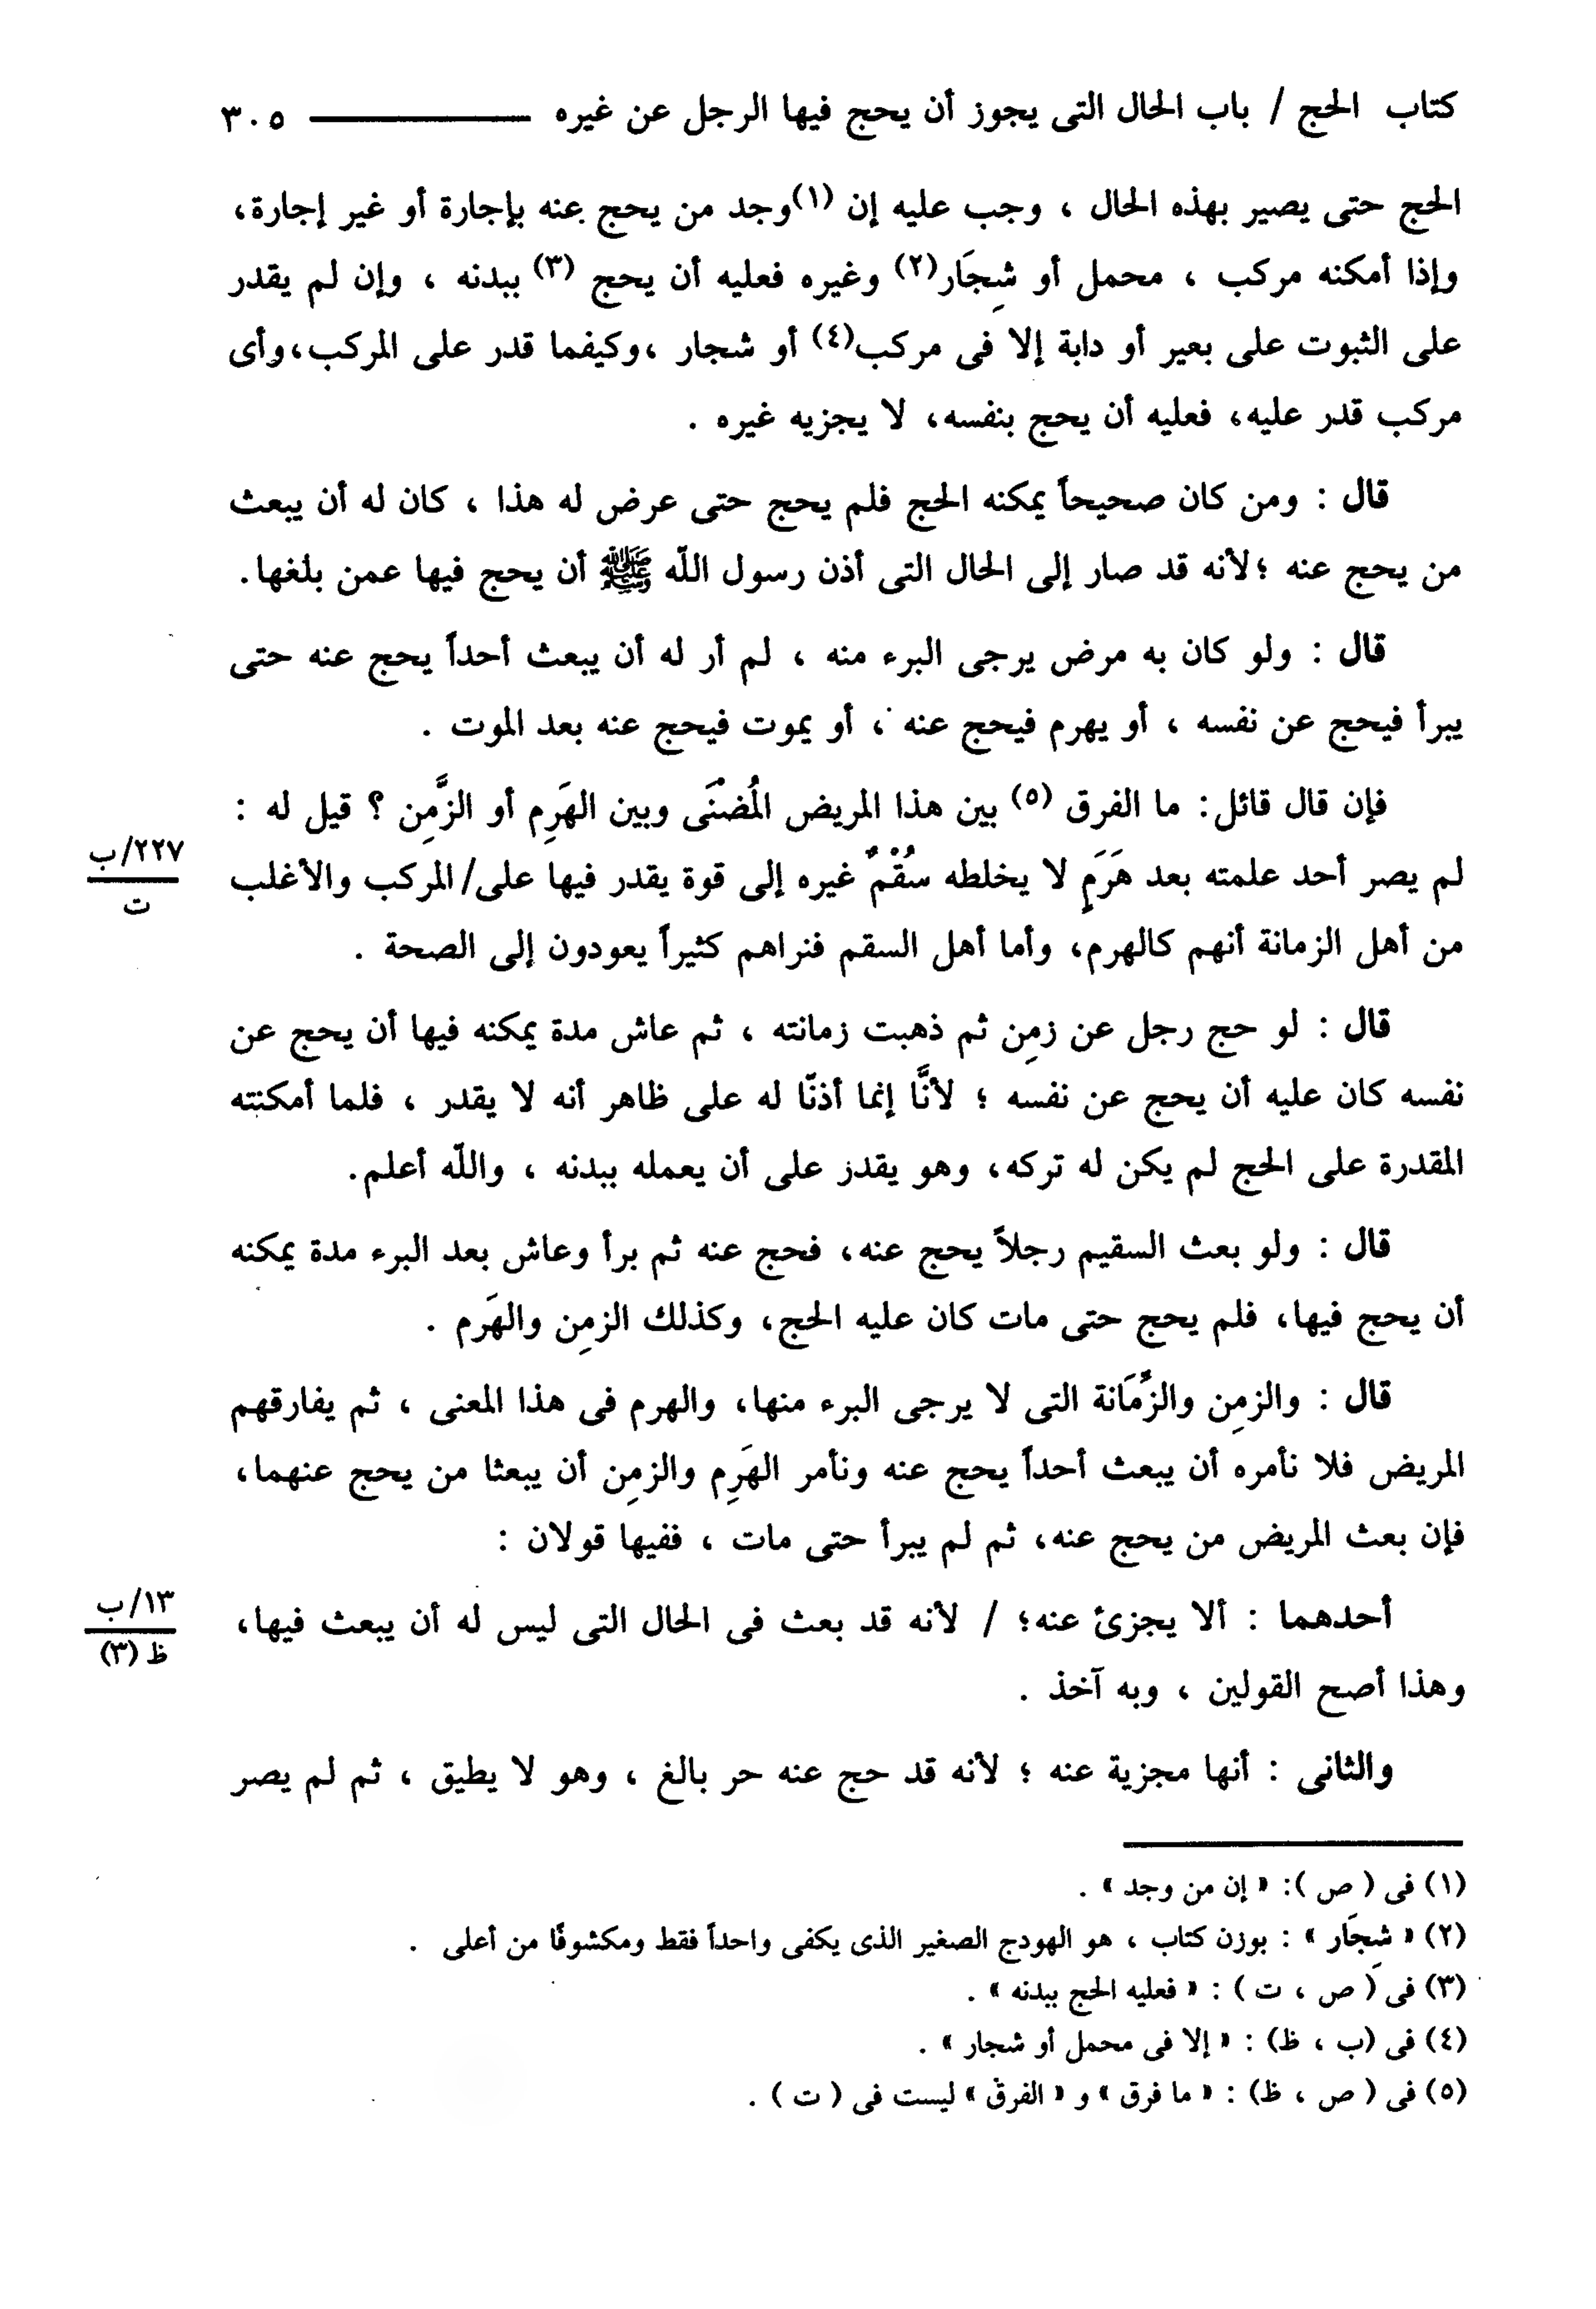 كتاب الحج / باب الحال التى يجوز أن يحج فيها الرجل عن غيره ــــــــــــــــ ٣٠٥
الحج حتى يصير بهذه الحال ، وجب عليه إن (١)وجد من يحج عنه بإجارة أو غير إجارة،
وإذا أمكنه مركب ، محمل أو شِجَار(٢) وغيره فعليه أن يحج (٣) ببدنه ، وإن لم يقدر
على الثبوت على بعير أو دابة إلا فى مركب(٤) أو شجار ،وكيفما قدر على المركب،وأى
مركب قدر عليه، فعليه أن يحج بنفسه، لا يجزيه غيره .
قال : ومن كان صحيحاً يمكنه الحج فلم يحج حتى عرض له هذا ، كان له أن يبعث
من يحج عنه ؛لأنه قد صار إلى الحال التى أذن رسول اللّه ﷺ أن يحج فيها عمن بلغها.
قال : ولو كان به مرض يرجى البرء منه ، لم أر له أن يبعث أحداً يحج عنه حتى
يبرأ فيحج عن نفسه ، أو يهرم فيحج عنه ، أو يموت فيحج عنه بعد الموت .
فإن قال قائل: ما الفرق (٥) بين هذا المريض المُضْنَى وبين الهَرِم أو الزَّمِن ؟ قيل له :
لم يصر أحد علمته بعد هَرَمٍ لا يخلطه سُقْمٌ غيره إلى قوة يقدر فيها على/ المركب والأغلب
٢٢٧/ب
ت
من أهل الزمانة أنهم كالهرم، وأما أهل السقم فنراهم كثيراً يعودون إلى الصحة .
قال : لو حج رجل عن زمِن ثم ذهبت زمانته ، ثم عاش مدة يمكنه فيها أن يحج عن
نفسه كان عليه أن يحج عن نفسه ؛ لأنَّا إنما أذنّا له على ظاهر أنه لا يقدر ، فلما أمكنته
المقدرة على الحج لم يكن له تركه، وهو يقدر على أن يعمله ببدنه ، واللّه أعلم.
قال : ولو بعث السقيم رجلاً يحج عنه، فحج عنه ثم برأ وعاش بعد البرء مدة يمكنه
أن يحج فيها، فلم يحج حتى مات كان عليه الحج، وكذلك الزمِن والهَرم .
قال : والزمِن والزَّمَانة التى لا يرجى البرء منها، والهرم فى هذا المعنى ، ثم يفارقهم
المريض فلا نأمره أن يبعث أحداً يحج عنه ونأمر الهَرِم والزمِن أن يبعثا من يحج عنهما،
فإن بعث المريض من يحج عنه، ثم لم يبرأ حتى مات ، ففيها قولان :
أحدهما : ألا يجزئ عنه؛ / لأنه قد بعث فى الحال التى ليس له أن يبعث فيها،
١٣/ب
ظ (٣)
وهذا أصح القولين ، وبه آخذ .
والثانى : أنها مجزية عنه ؛ لأنه قد حج عنه حر بالغ ، وهو لا يطيق ، ثم لم يصر
(١) فى ( ص ): « إن من وجد » .
(٢) « شِجَار » : بوزن كتاب ، هو الهودج الصغير الذى يكفى واحداً فقط ومكشوفًا من أعلى .
(٣) فى ( ص ، ت ) : « فعليه الحج ببدنه » .
(٤) فى (ب ، ظ) : « إلا فى محمل أو شجار » .
(٥) فى ( ص ، ظ) : « ما فرق » و « الفرق » ليست فى ( ت ) .